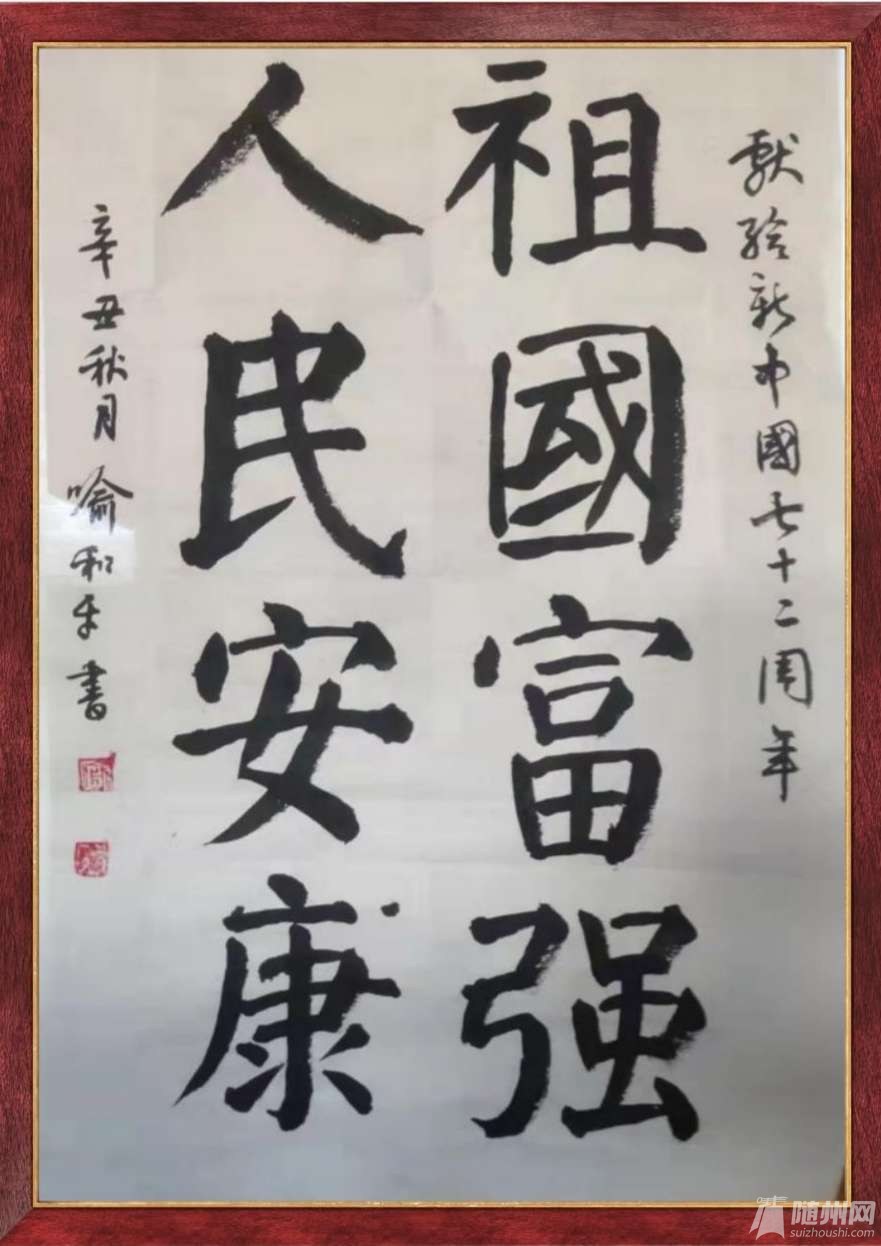 献给新中國七十二周年
祖國富强
人民安康
辛丑秋月 喻和平書
随州网
suizhoushi.com